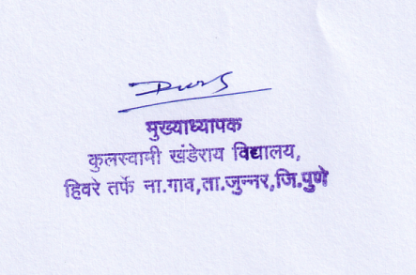 मुख्याध्यापक
कुलस्वामी खंडेराय विद्यालय,
हिवरे तर्फे ना.गाव,ता.जुन्नर,जि.पुणे